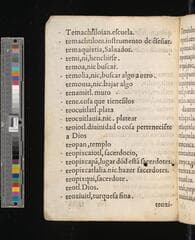 Temachtiloian. escuela.
temachtiloni. instrumento de enseñar.
temaquixtia, Saluador.
temi, ni, henchirse.
temoa, nic, buscar.
temolia, nic, buscar algo a otro.
temoua, nic, bajar algo
tenamitl. muro
teneoefa que tienefilos
teocuitlatl. plata
teocuitlauia. nic. platear
teoiotl. diuinidad o cosa perteneciente
a Dios
teopan, templo
teopixcaiotl, sacerdocio,
teopixcapā, lugar dōd estā sacerdotes.
teopixcatlalia. nic. hazer sacerdotes.
teopixqui, sacerdotes.
teotl. Dios.
teoxiuitl, turquesa fina.
teuxi-